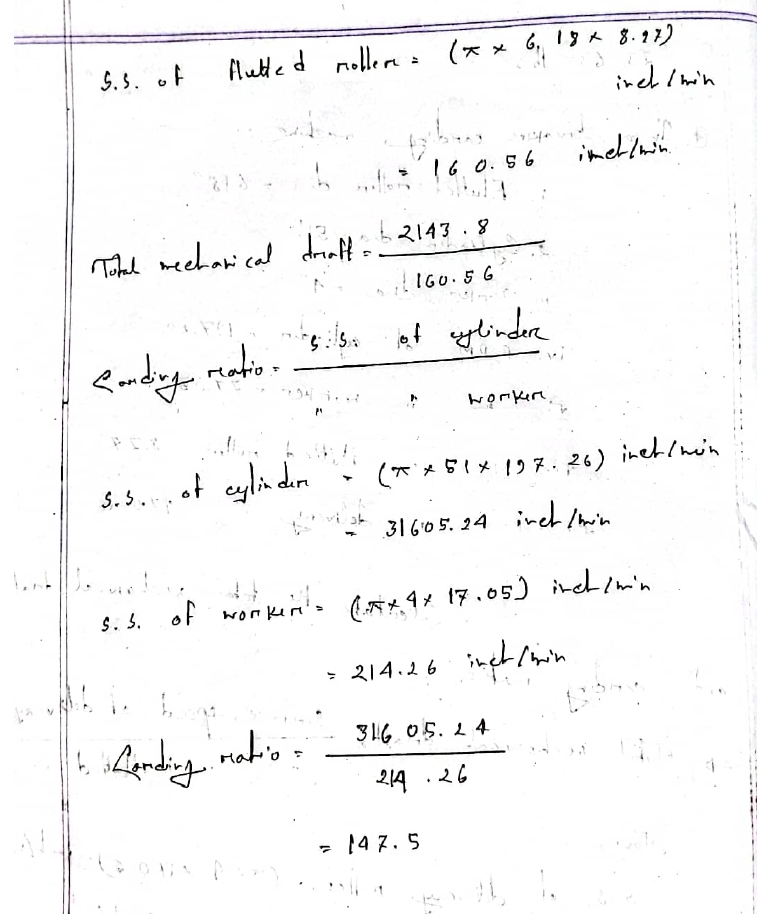 S.S. of fluted roller = (π × 6.18 × 8.27)
inch/min
= 160.56 inch/min
Total mechanical draft = 2143.8
160.56
Carding ratio = S.S. of cylinder
" " worker
S.S. of cylinder = (π × 51 × 197.26) inch/min
= 31605.24 inch/min
S.S. of worker = (π × 4 × 17.05) inch/min
= 214.26 inch/min
Carding ratio = 31605.24
214.26
= 147.5